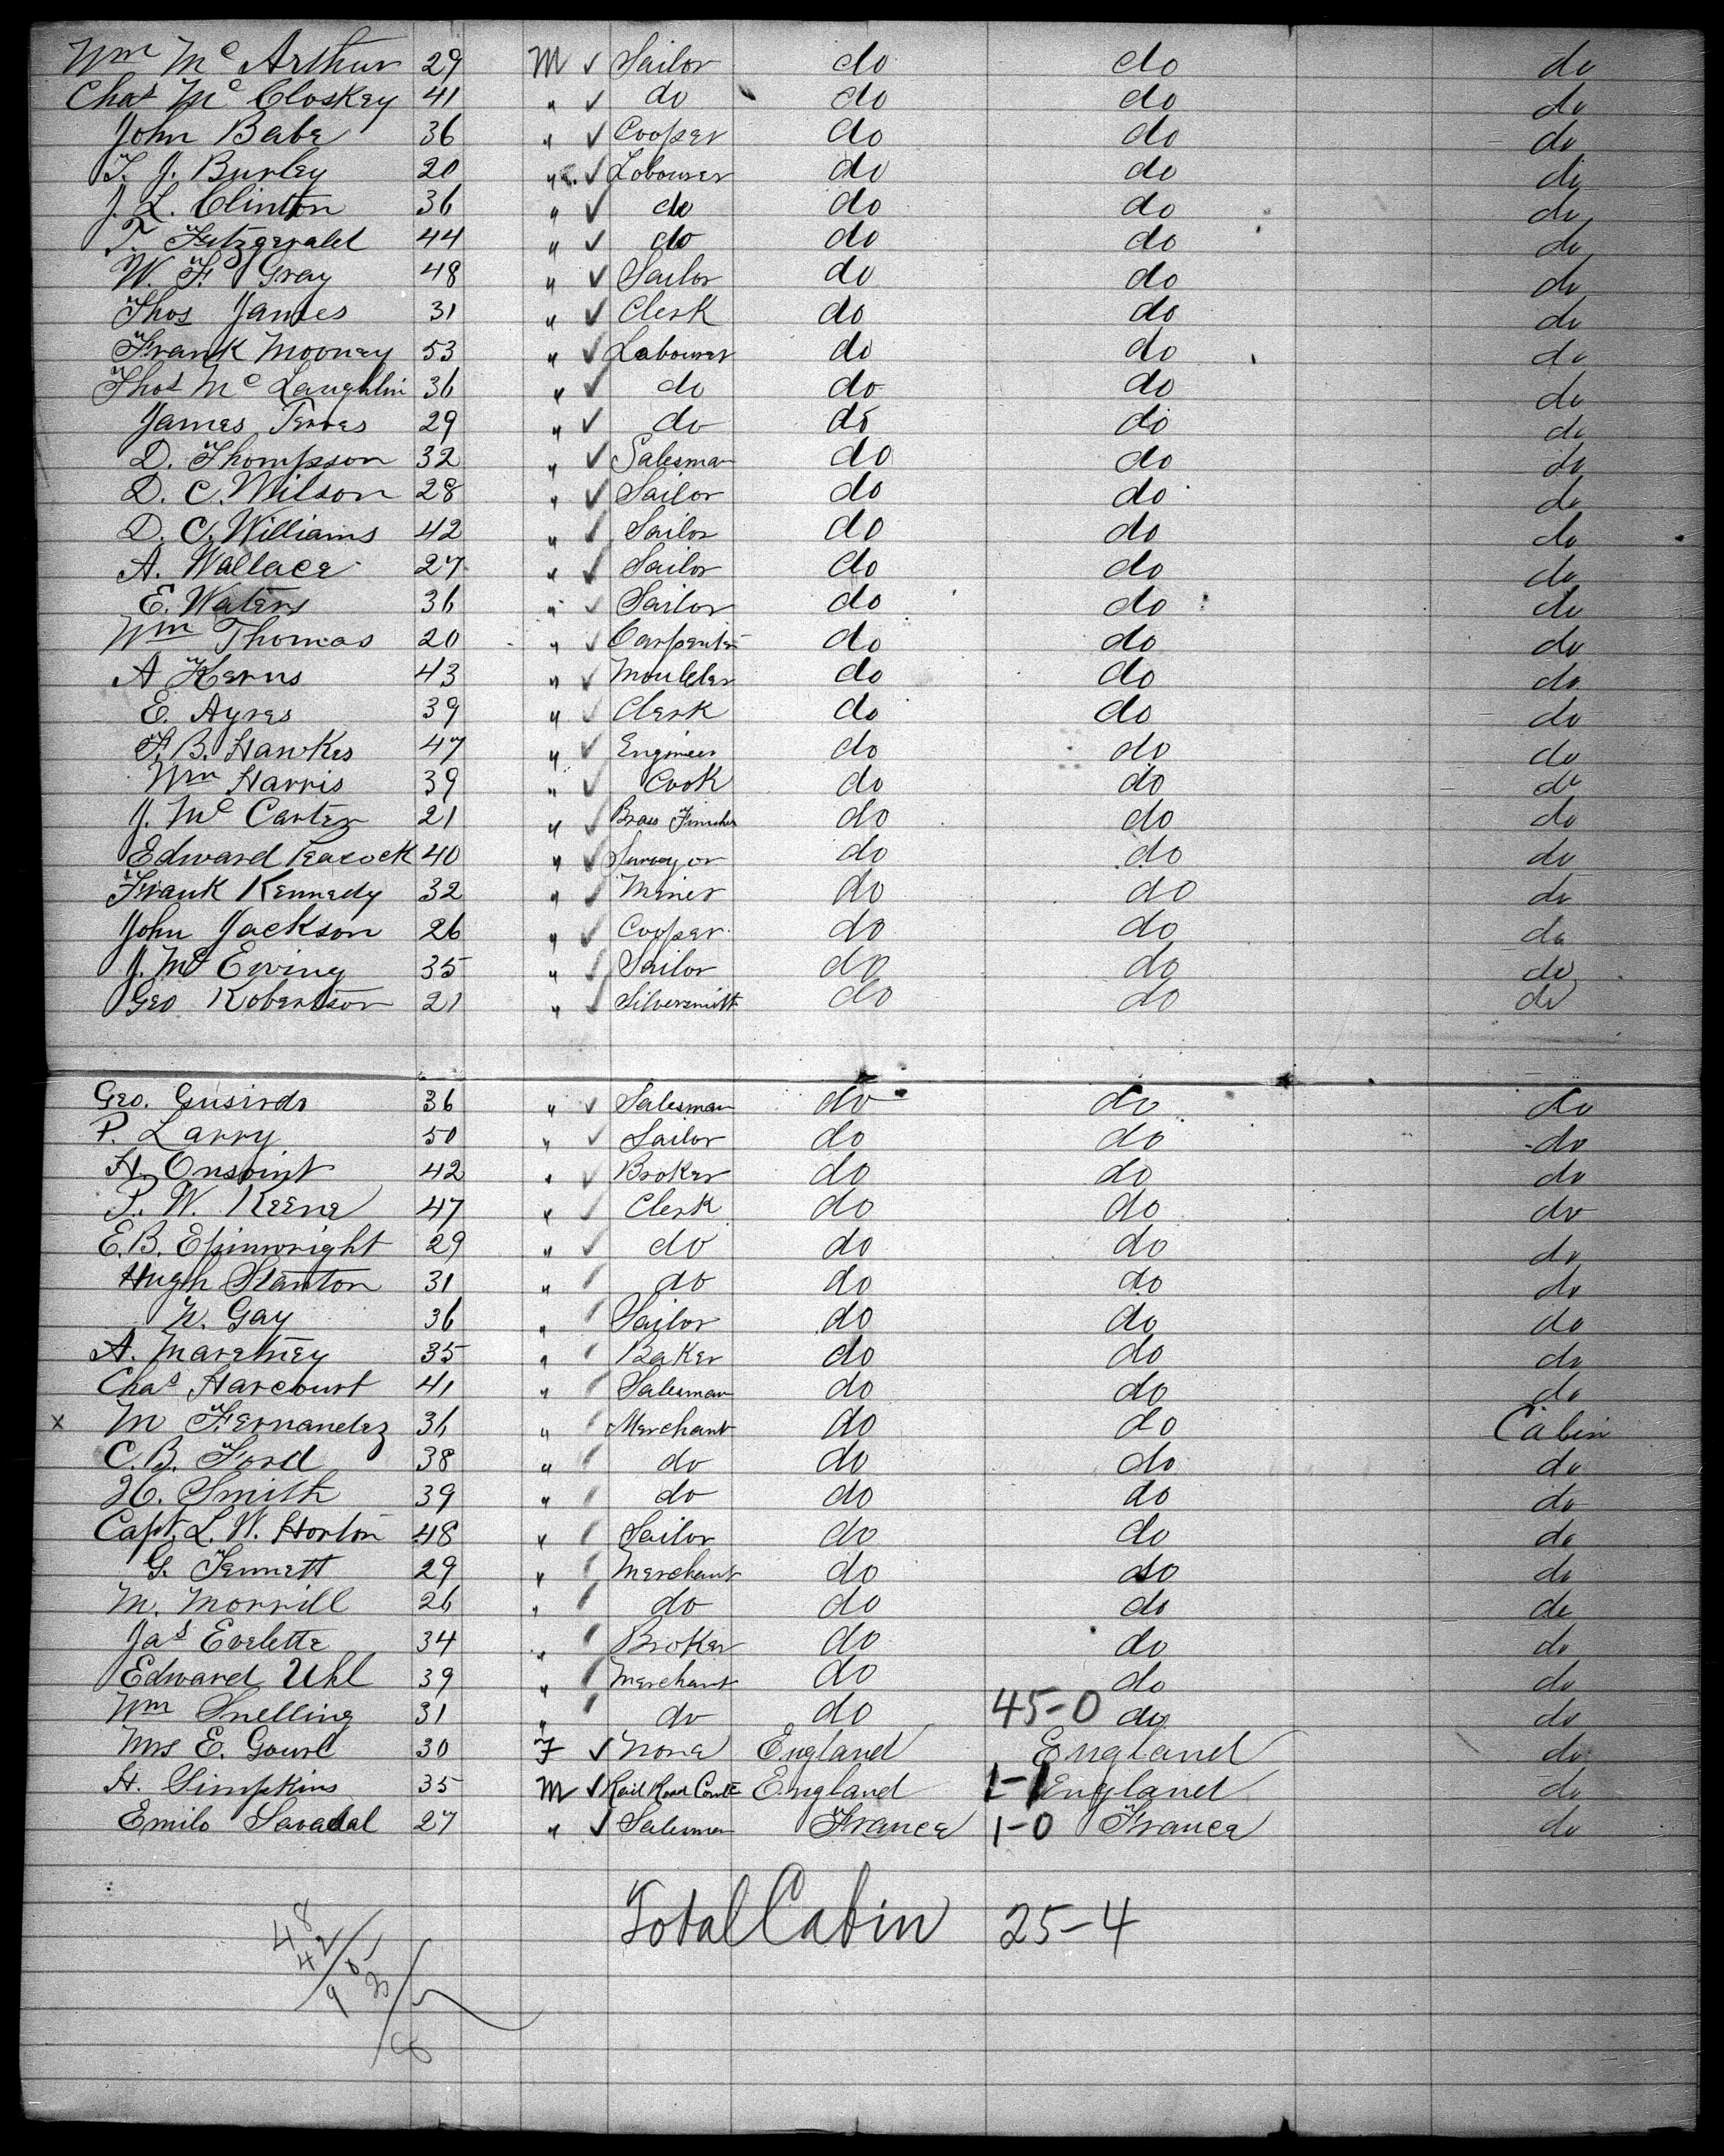 Wm Mc Arthur 29 M ✓ Sailor do do do
Chas Mc Closkey 41 " ✓ do do do do
John Babe 36 " ✓ Cooper do do do
T. J. Burley 20 " ✓ Labourer do do do
J. L. Clinton 36 " ✓ do do do do
T. Fitzgerald 44 " ✓ do do do do
W. F. Gray 48 " ✓ Sailor do do do
Thos James 31 " ✓ Clerk do do do
Frank Mooney 53 " ✓ Labourer do do do
Thos Mc Laughlin 36 " ✓ do do do do
James 29 " ✓ do do do do
D. Thompson 32 " ✓ Salesman do do do
D. C. Wilson 28 " ✓ Sailor do do do
D. C. Williams 42 " ✓ Sailor do do do
A. Wallace 27 " ✓ Sailor do do do
E. Waters 36 " ✓ Sailor do do do
Wm Thomas 20 " ✓ Carpenter do do do
A Kerns 43 " ✓ Moulder do do do
E. Ayres 39 " ✓ Clerk do do do
F. B. Hawkes 47 " ✓ Engineer do do do
Wm Harris 39 " ✓ Cook do do do
J. Mc Carter 21 " ✓ Brass Finisher do do do
Edward Peacock 40 " ✓ Surveyor do do do
Frank Kennedy 32 " ✓ Miner do do do
John Jackson 26 " ✓ Cooper do do do
J. Mc Ewing 35 " ✓ Sailor do do do
Geo Robertson 21 " ✓ Silversmith do do do
Geo. 36 " ✓ Salesman do do do
P. Larry 50 " ✓ Sailor do do do
H. 42 " ✓ Broker do do do
P. W. Keene 47 " ✓ Clerk do do do
E. B. Epinwright 29 " ✓ do do do do
Hugh Stanton 31 " do do do do
N. Gay 36 " Sailor do do do
A. 35 " Baker do do do
Chas Harcourt 41 " Salesman do do do
x M Fernandez 36 " Merchant do do Cabin
C. B. Ford 38 " do do do do
H. Smith 39 " do do do do
Capt. L. W. Horton 48 " Sailor do do do
G. Jennett 29 " Merchant do do do
M. Morrill 26 " do do do do
Jas Evelette 34 " Broker do do do
Edward Uhl 39 " Merchant do do do
Wm Snelling 31 " do do 45-0 do do
Mrs E. 30 F ✓ None England England do
H. Simpkins 35 M ✓ Rail Road England 1-1 England do
Emilo 27 " ✓ Salesman France 1-0 France do
Total Cabin 25-4
48
42